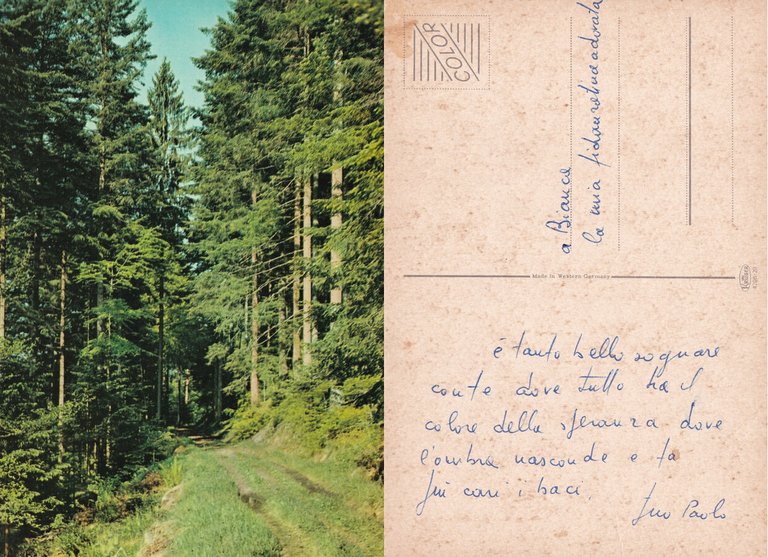 COLOR
a Bianca
la mia fidanzatina adorata
Made in Western Germany
è tanto bello sognare
con te dove tutto ha il
colore della speranza dove
l'ombra nasconde e fa
più cari i baci.
tuo Paolo